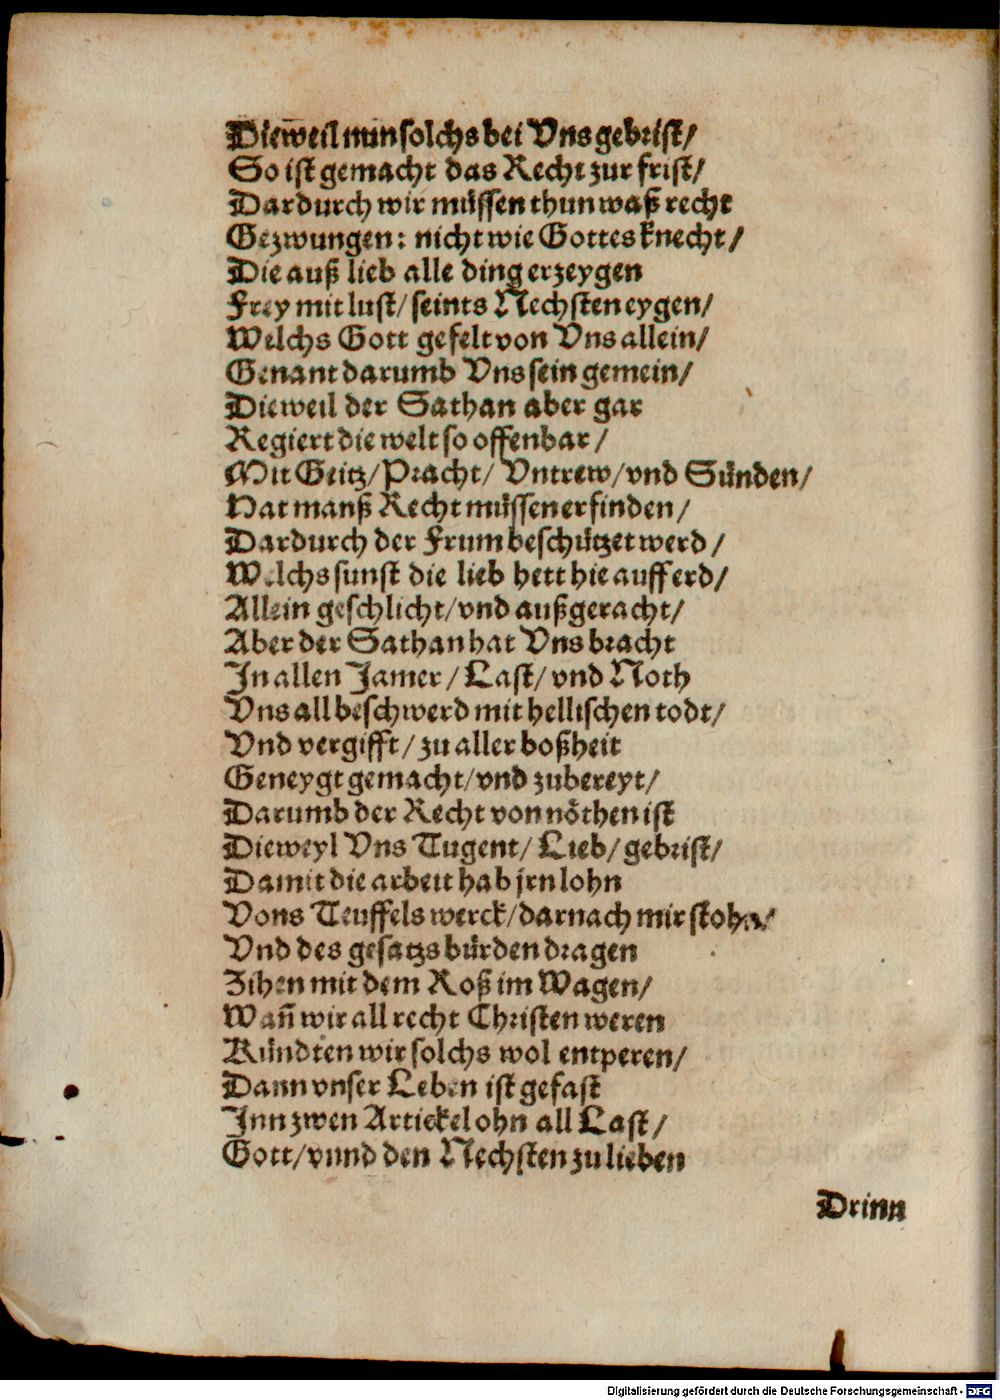 Dieweil nun solchs bei Vns gebrist/
So ist gemacht das Recht zur frist/
Dardurch wir müssen thun waß recht
Gezwungen: nicht wie Gottes knecht/
Die auß lieb alle ding erzeygen
Frey mit lust/ seints Nechsten eygen/
Welchs Gott gefelt von Vns allein/
Genant darumb Vns sein gemein/
Dieweil der Sathan aber gar
Regiert die welt so offenbar/
Mit Geitz/ Pracht/ Vntrew/ vnd Sünden/
Hat manß Recht müssen erfinden/
Dardurch der Frum beschützet werd/
Welchs sunst die lieb hett hie auff erd/
Allein geschlicht/ vnd außgeracht/
Aber der Sathan hat Vns bracht
In allen Jamer/ Last/ vnd Noth
Vns all beschwerd mit hellischen todt/
Vnd vergifft/ zu aller boßheit
Geneygt gemacht/ vnd zubereyt/
Darumb der Recht von nöthen ist
Dieweyl Vns Tugent/ Lieb/ gebrist/
Damit die arbeit hab jrn lohn
Vons Teuffels werck/ darnach mir stohn/
Vnd des gesatzs bürden dragen
Zihen mit dem Roß im Wagen/
Wañ wir all recht Christen weren
Kündten wir solchs wol entperen/
Dann vnser Leben ist gefast
Inn zwen Artickel ohn all Last/
Gott/ vnnd den Nechsten zu lieben
Drinn
Digitalisierung gefördert durch die Deutsche Forschungsgemeinschaft - DFG